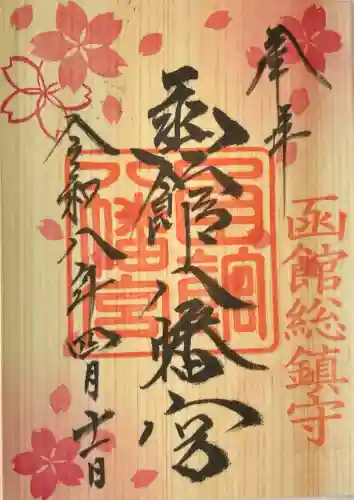 奉拝
函館総鎮守
函館八幡宮
令和八年四月十一日